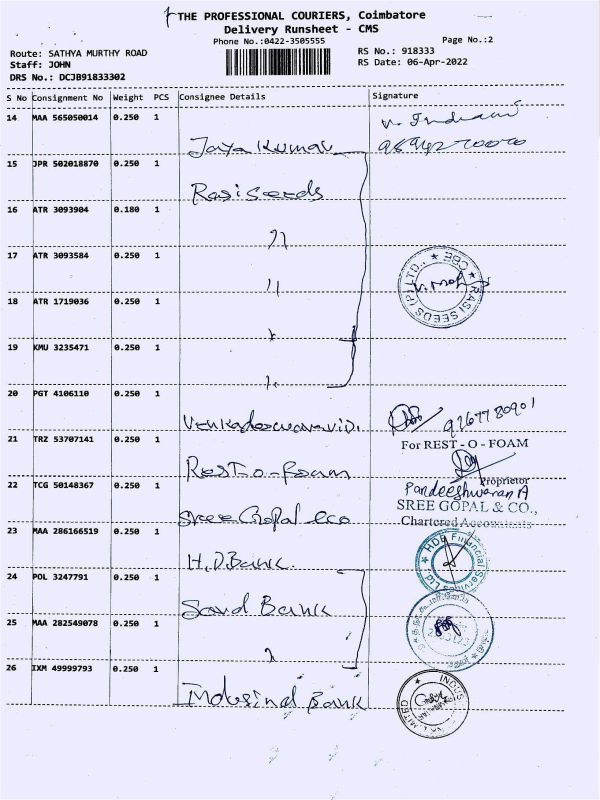 THE PROFESSIONAL COURIERS, Coimbatore
Delivery Runsheet - CMS
Phone No.:0422-3505555
Page No.:2
Route: SATHYA MURTHY ROAD
Staff: JOHN
DRS No.: DCJB91833302
RS No.: 918333
RS Date: 06-Apr-2022
S No Consignment No Weight PCS Consignee Details Signature
14 MAA 565050014 0.250 1
Jaya Kumar
15 JPR 502018870 0.250 1
Rasi Seeds
16 ATR 3093904 0.180 1
17 ATR 3093584 0.250 1
18 ATR 1719036 0.250 1
RASI SEEDS (P) LTD., CBE
19 KMU 3235471 0.250 1
20 PGT 4106110 0.250 1
9267780901
21 TRZ 53707141 0.250 1
For REST - O - FOAM
Rest-o-foam
Proprietor
22 TCG 50148367 0.250 1
Pandeeshwaran A
SREE GOPAL & CO.,
Chartered Accountants
Sree Gopal & co
23 MAA 286166519 0.250 1
H.D.Bank.
HDB Financial Services Ltd.
24 POL 3247791 0.250 1
Bank
25 MAA 282549078 0.250 1
26 IXM 49999793 0.250 1
Indusind Bank
INDUS
LIMITED